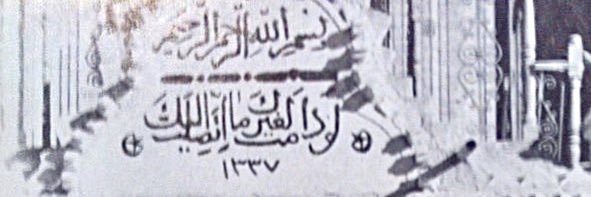 بسم الله الرحمن الرحيم
لو دامت لغيرك ما اتصلت إليك
١٣٣٧